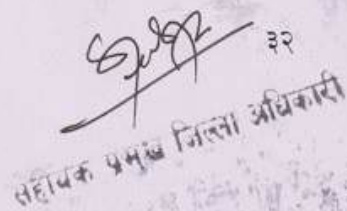 ३२
सहायक प्रमुख जिल्ला अधिकारी